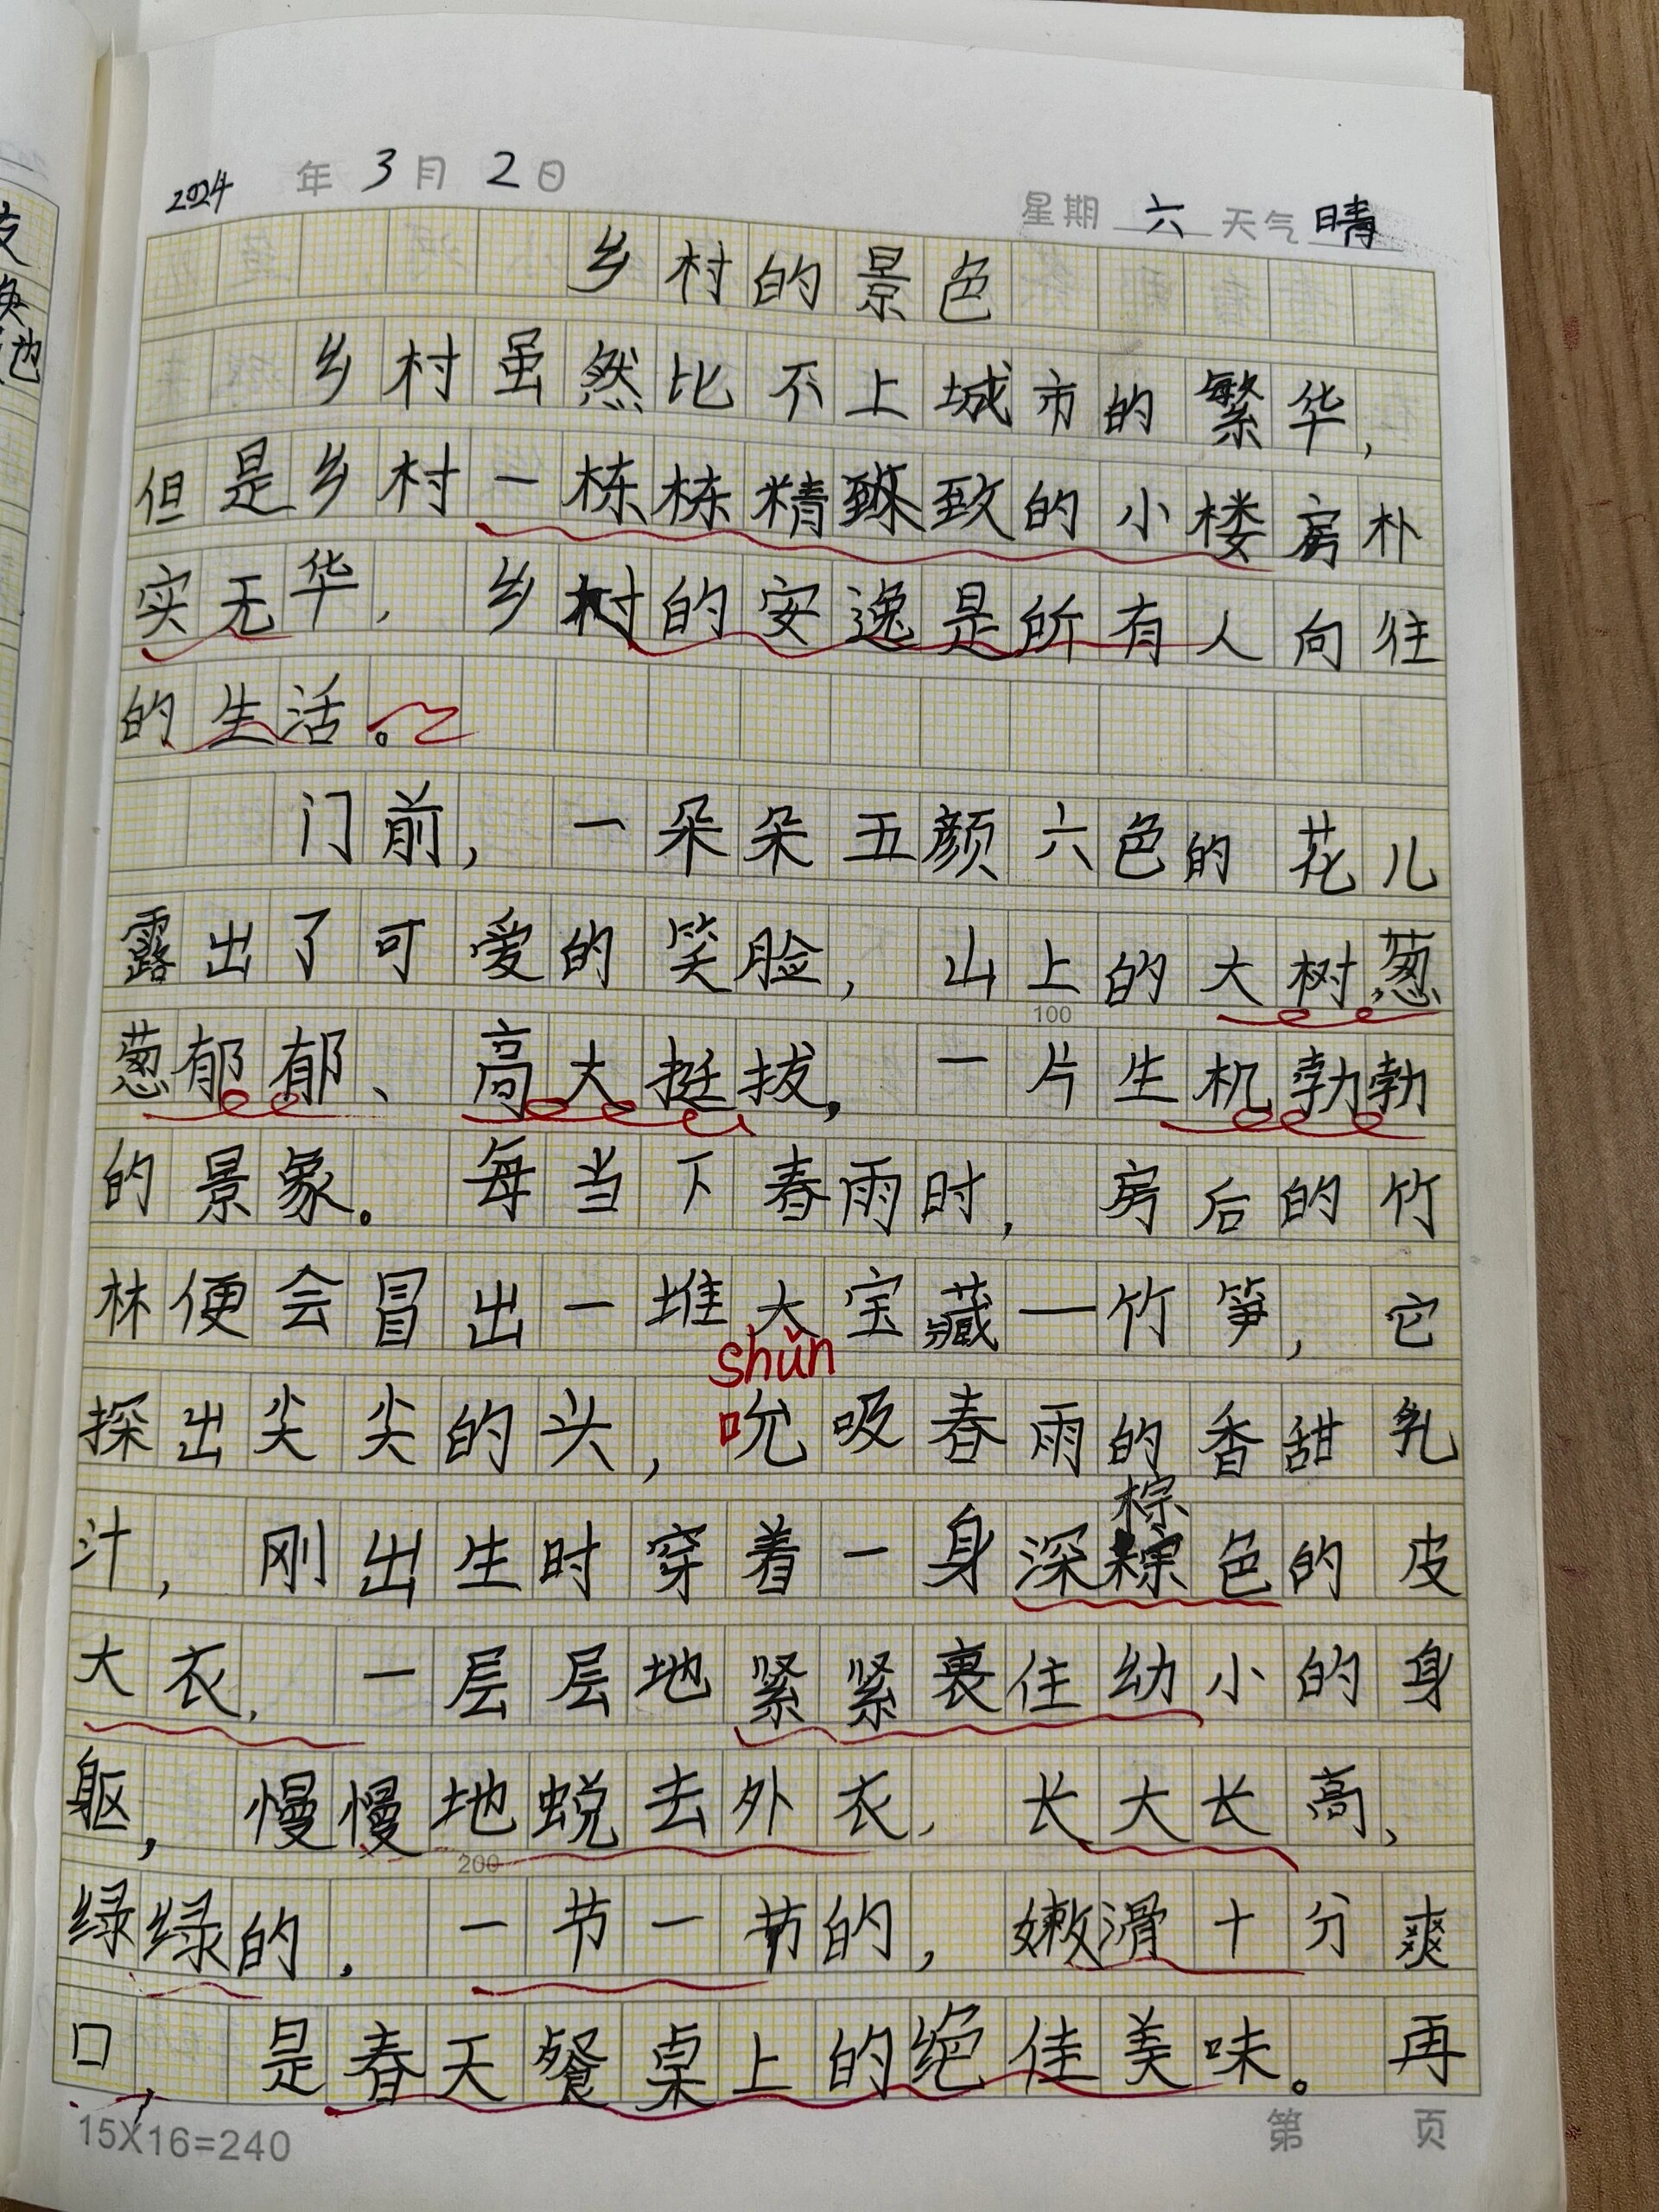 2024 年 3 月 2 日
星期 六 天气 晴
乡村的景色
乡村虽然比不上城市的繁华，
但是乡村一栋栋精致的小楼房朴
实无华，乡村的安逸是所有人向往
的生活。
门前，一朵朵五颜六色的花儿
露出了可爱的笑脸，山上的大树葱
葱郁郁、高大挺拔，一片生机勃勃
100
的景象。每当下春雨时，房后的竹
林便会冒出一堆大宝藏—竹笋，它
shǔn
探出尖尖的头，吮吸春雨的香甜乳
汁，刚出生时穿着一身深棕色的皮
大衣，一层层地紧紧裹住幼小的身
躯，慢慢地蜕去外衣，长大长高，
200
绿绿的，一节一节的，嫩滑十分爽
口，是春天餐桌上的绝佳美味。再
15X16=240
第 页